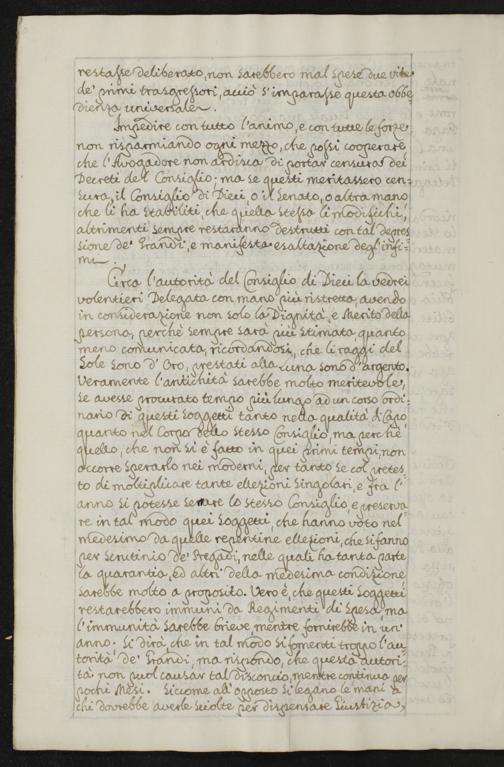 restasse deliberato, non sarebbero mal spese due vite
de' primi trasgressori, acciò s'imparasse questa obbe=
dienza universale.
Impedire con tutto l'animo, e con tutte le forze
non risparmiando ogni mezzo, che possi cooperare,
che l'Avogadore non ardisca di portar censura dei
Decreti del Consiglio; ma se questi meritassero cen=
sura, il Consiglio di Dieci, o il Senato, o altra mano
che li ha stabiliti, che quella stessa li modifichi,
altrimenti sempre restaranno destrutti con tal depres=
sione de' Grandi, e manifesta esaltazione degl'infi=
mi.
Circa l'autorità del Consiglio di Dieci la vedrei
volentieri Delegata con mano più ristretta, avendo
in considerazione non solo la Dignità, e Merito della
persona, perchè sempre sarà più stimata, quanto
meno comunicata, ricordandosi, che li raggi del
Sole sono d'Oro, prestati alla Luna sono d'argento.
Veramente l'antichità sarebbe molto meritevole,
se avesse procurato tempo più lungo ad un corso ordi=
nario di questi soggetti tanto nella qualità di Capo
quanto nel Corpo dello stesso Consiglio, ma perchè
quello, che non si è fatto in quei primi tempi, non
occorre sperarlo nei moderni, per tanto se col pretes=
to di moltiplicare tante ellezioni singolari, e frà l'
anno si potesse serrare lo stesso Consiglio, e preserva=
re in tal modo quei soggetti, che hanno voto nel
medesimo da quelle repentine ellezioni, che si fanno
per scrutinio de' Pregadi, nelle quali ha tanta parte
la quarantia, ed altri della medesima condizione
sarebbe molto a proposito. Vero è, che questi soggetti
restarebbero immuni da Regimenti di spesa, ma
l'immunità sarebbe brieve, mentre fornirebbe in un'
anno. Si dirà, che in tal modo si fomenti troppo l'au=
torità de' Grandi, ma rispondo, che questa autori=
tà non puol causar tal disconcio, mentre continua per
pochi Mesi. Siccome all'opposto si legano le mani a
chi dovrebbe averle sciolte per dispensare Giustizia,